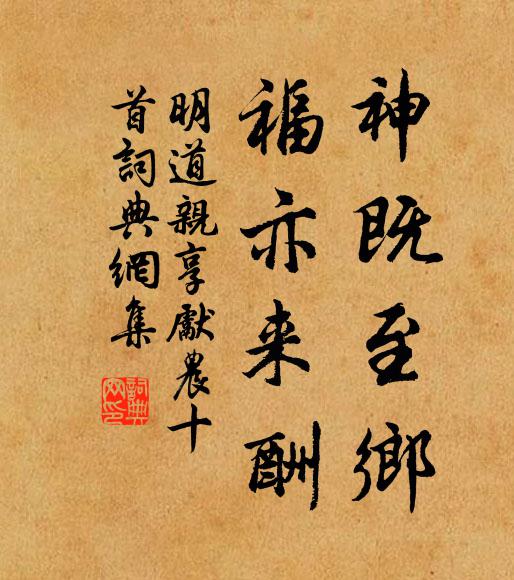 神既至鄉
福亦来酬
明道親享獻農十
首詞典網集
詞典
网印